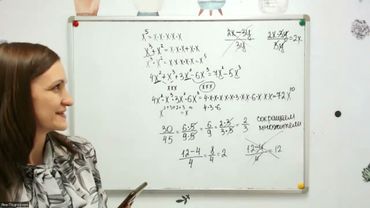 x⁵ = x·x·x·x·x
x³+x² = x·x·x+x·x
x³·x² = x·x·x·x·x = x⁵
4x² + x³ + 3x² - 6x³ = 7x² - 5x³
xxx
(xxx)
4x²·x³·3x²·6x³ = 4·x·x·x·x·x·3·x·x·6·x·x·x = 72x¹⁰
4·3·6
30/45 = 6·5/9·5 = 6/9 = 2·3/3·3 = 2/3
сокращаем
множители
(12-4)/4 = 8/4 = 2
(12-4)/4 = 12
(2x-3y)/3y
(2x·3y)/3y = 2x